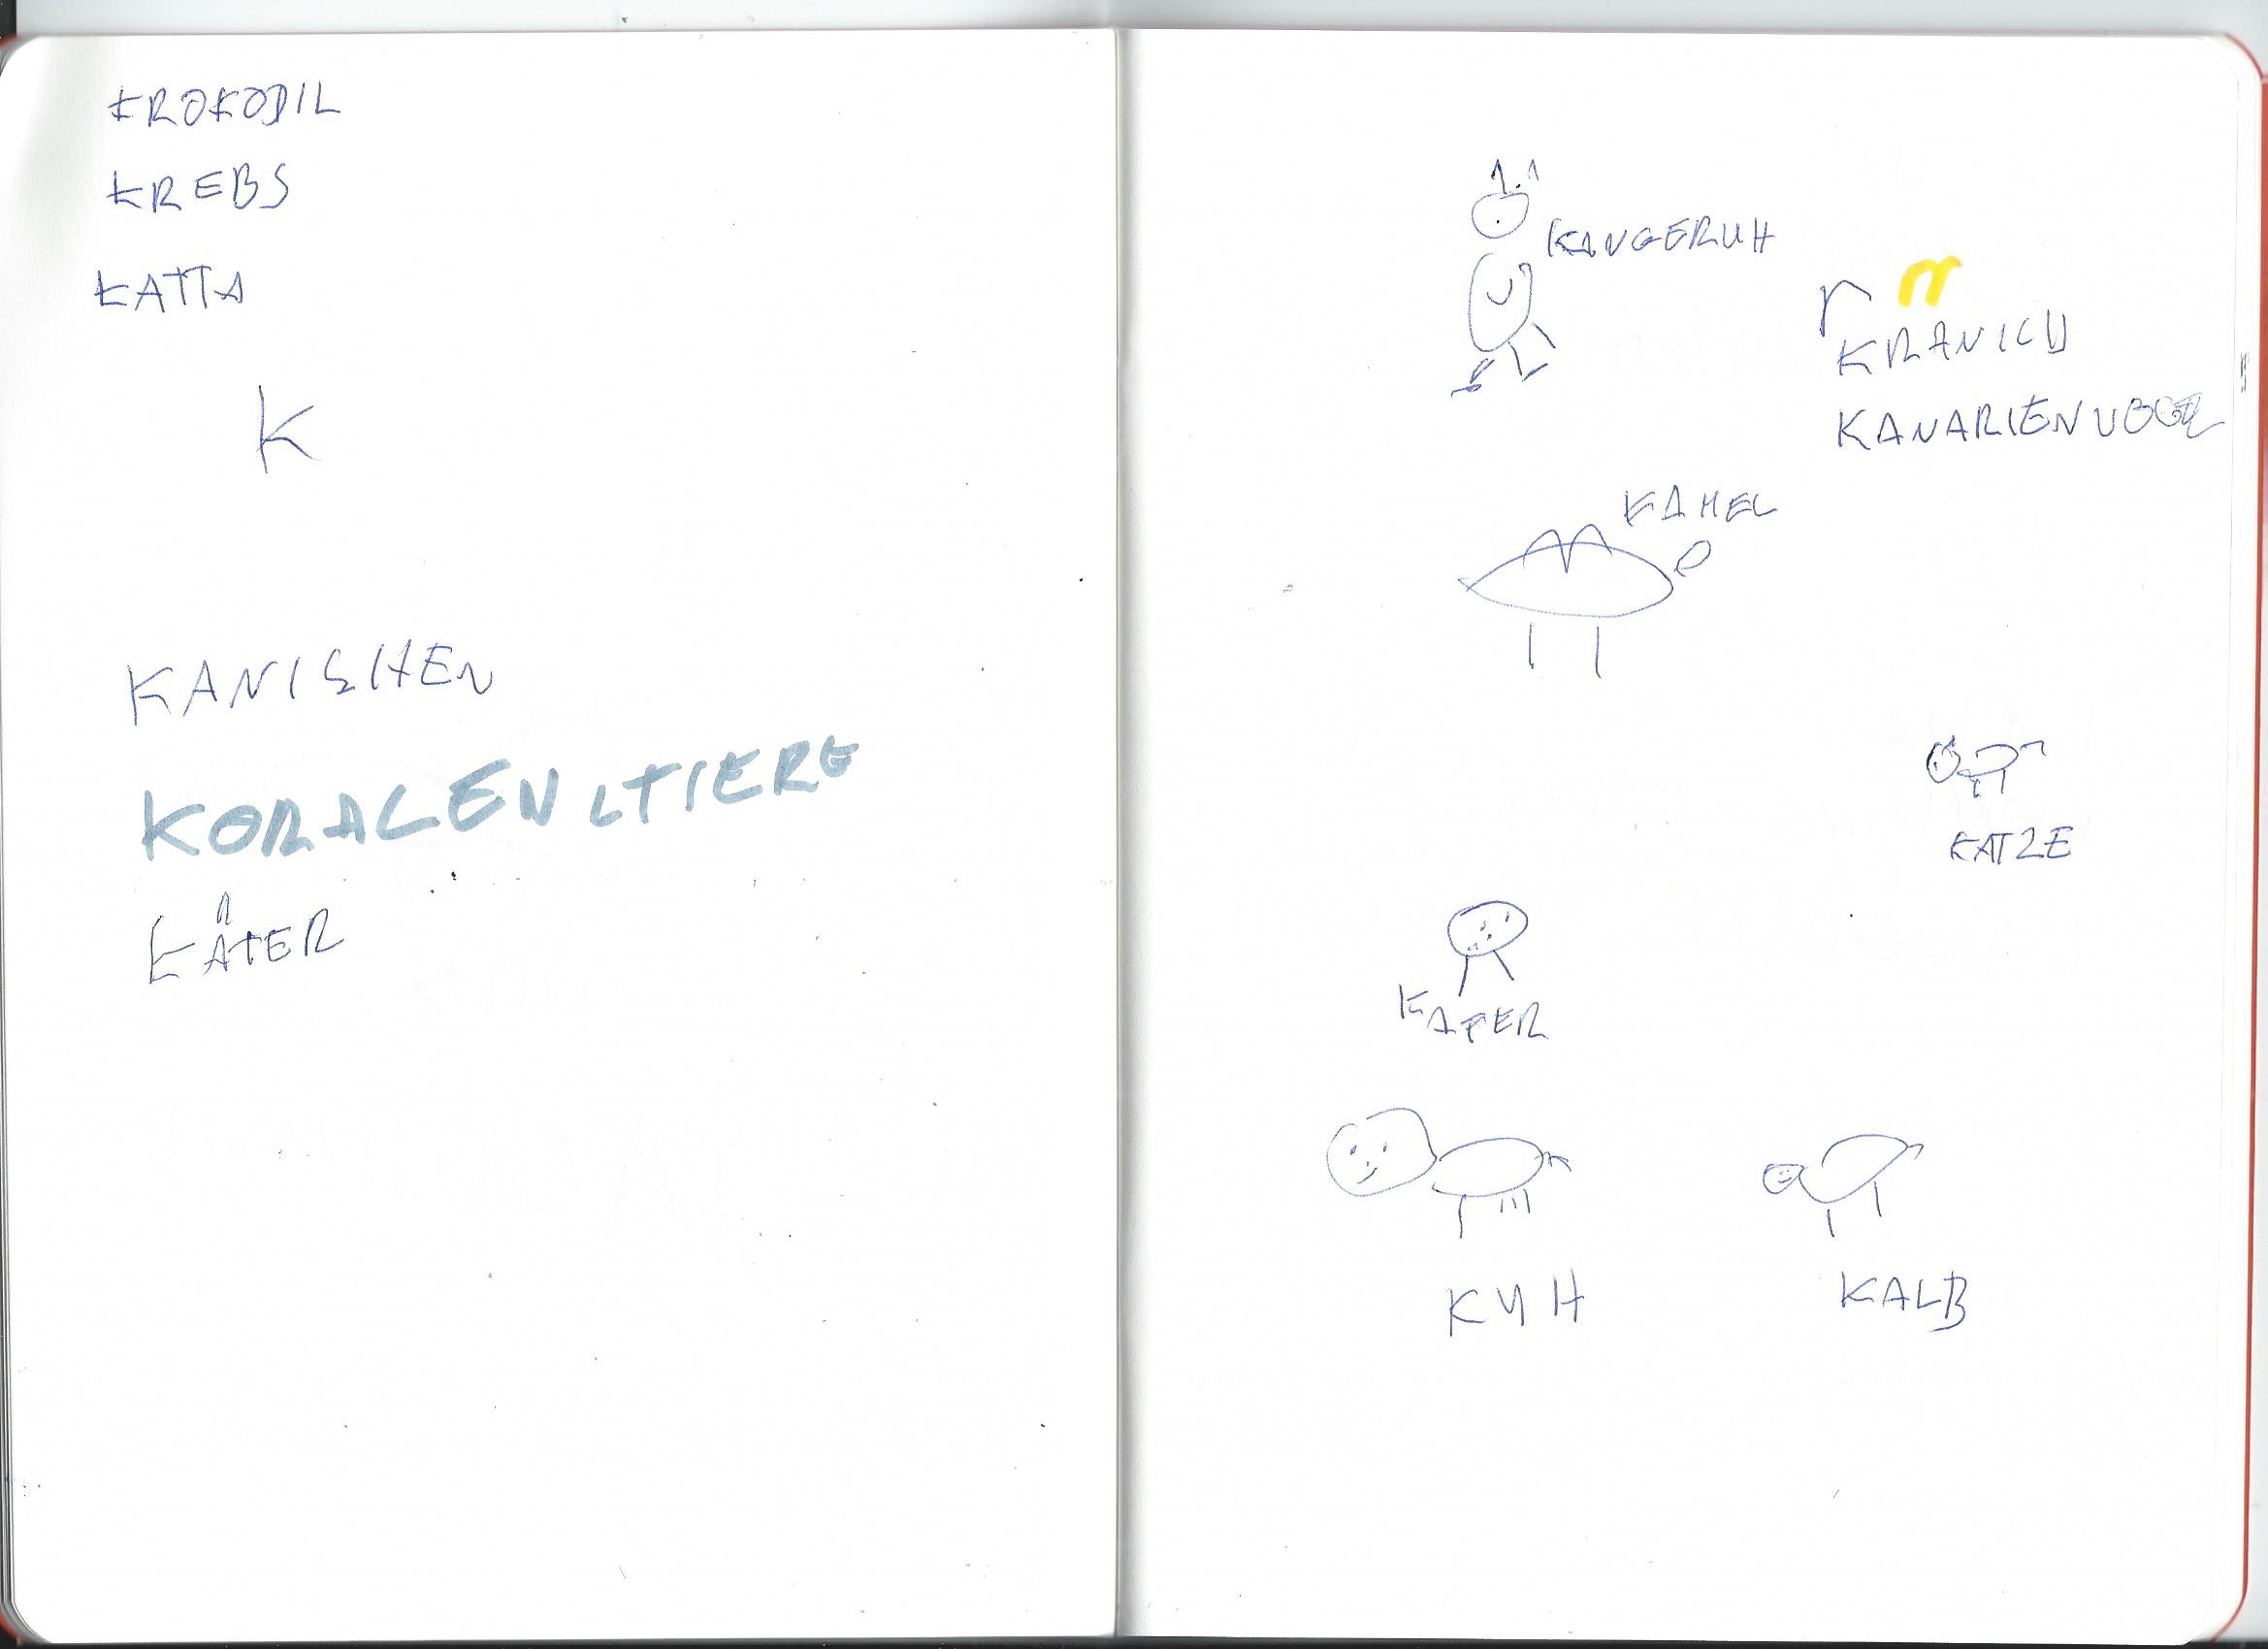 KROKODIL
KREBS
KATTA
K
KANISHEN
KORALEN LTIERE
KATER
KANGERUH
KRANICH
KANARIENVOGEL
KAMEL
KATZE
KAFER
KUH
KALB